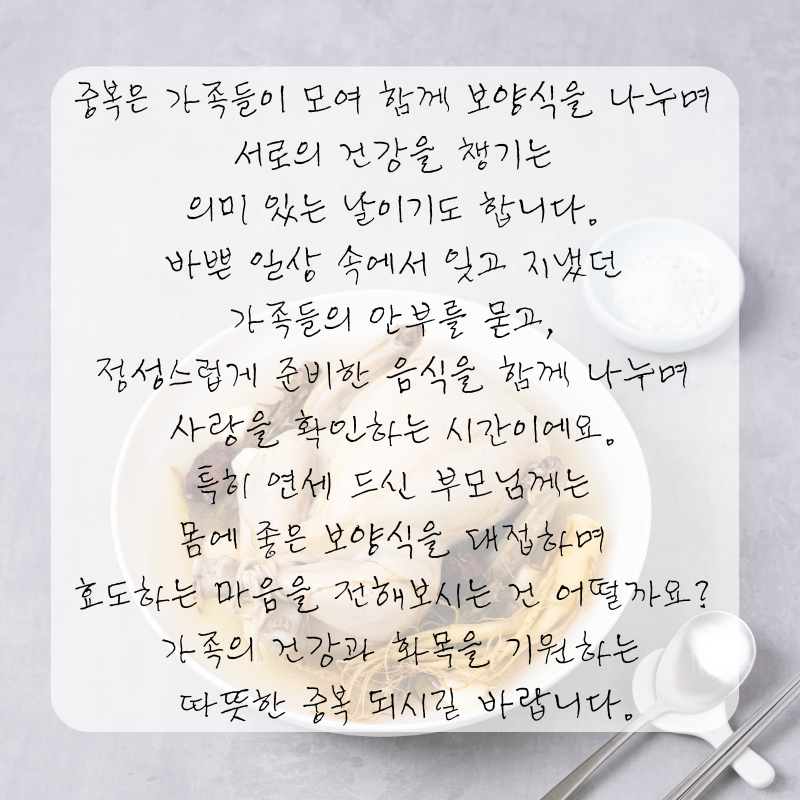 중복은 가족들이 모여 함께 보양식을 나누며
서로의 건강을 챙기는
의미 있는 날이기도 합니다.
바쁜 일상 속에서 잊고 지냈던
가족들의 안부를 묻고,
정성스럽게 준비한 음식을 함께 나누며
사랑을 확인하는 시간이에요.
특히 연세 드신 부모님께는
몸에 좋은 보양식을 대접하며
효도하는 마음을 전해보시는 건 어떨까요?
가족의 건강과 화목을 기원하는
따뜻한 중복 되시길 바랍니다.